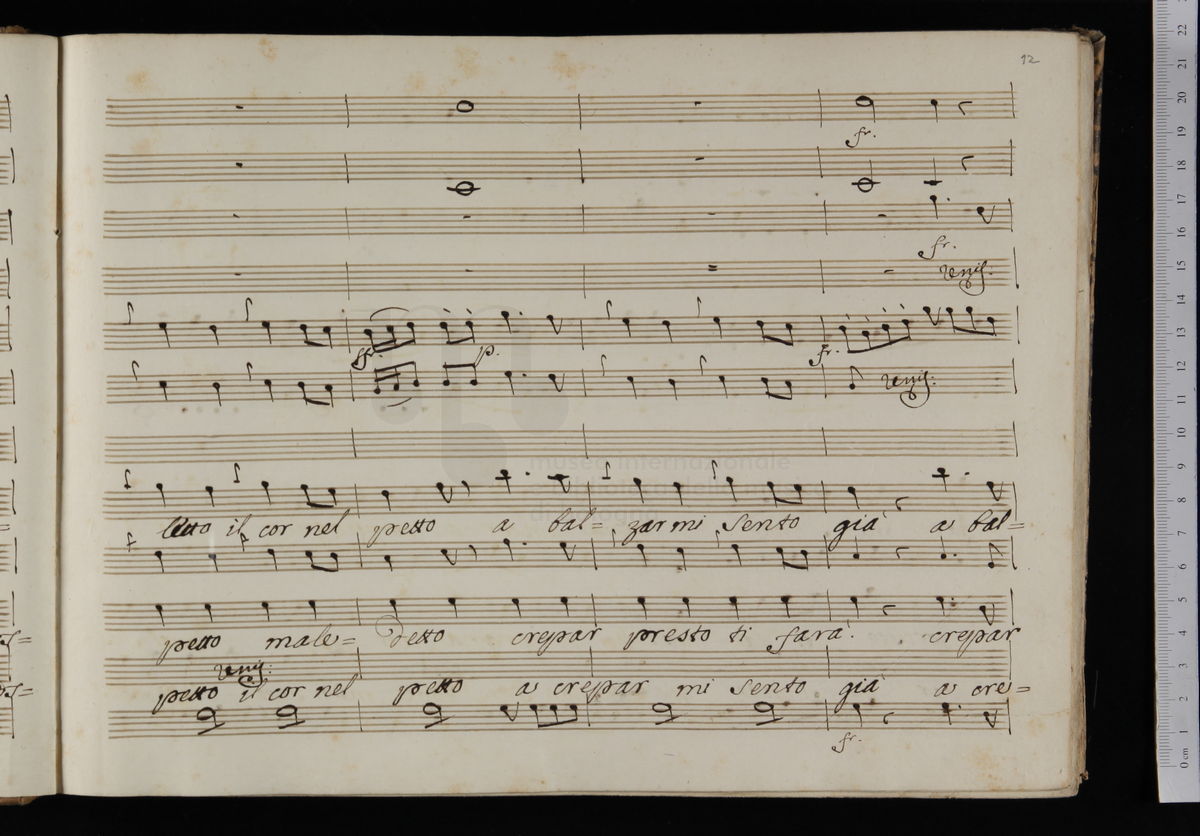 12
fr.
fr.
unis:
p.
fr.
unis:
letto il cor nel petto a bal= zar mi sento già a bal=
petto male= detto crepar presto ti farà. crepar
unis:
petto il cor nel petto a crepar mi sento già a cre=
fr.
museo internazionale